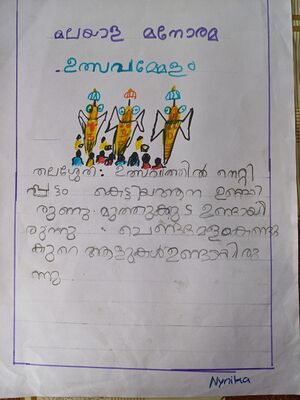 മലയാള മനോരമ
ഉത്സവമേളം
തലശ്ശേരി: ഉത്സവത്തിൽ നെറ്റി
പ്പട്ടം കെട്ടിയആന ഉണ്ടാ
രുന്നു. മുത്തുക്കുട ഉണ്ടായി
രുന്നു. ചെണ്ടമേളം
കുറെ ആളുകൾഉണ്ടായിരു
ന്നു
Nynika